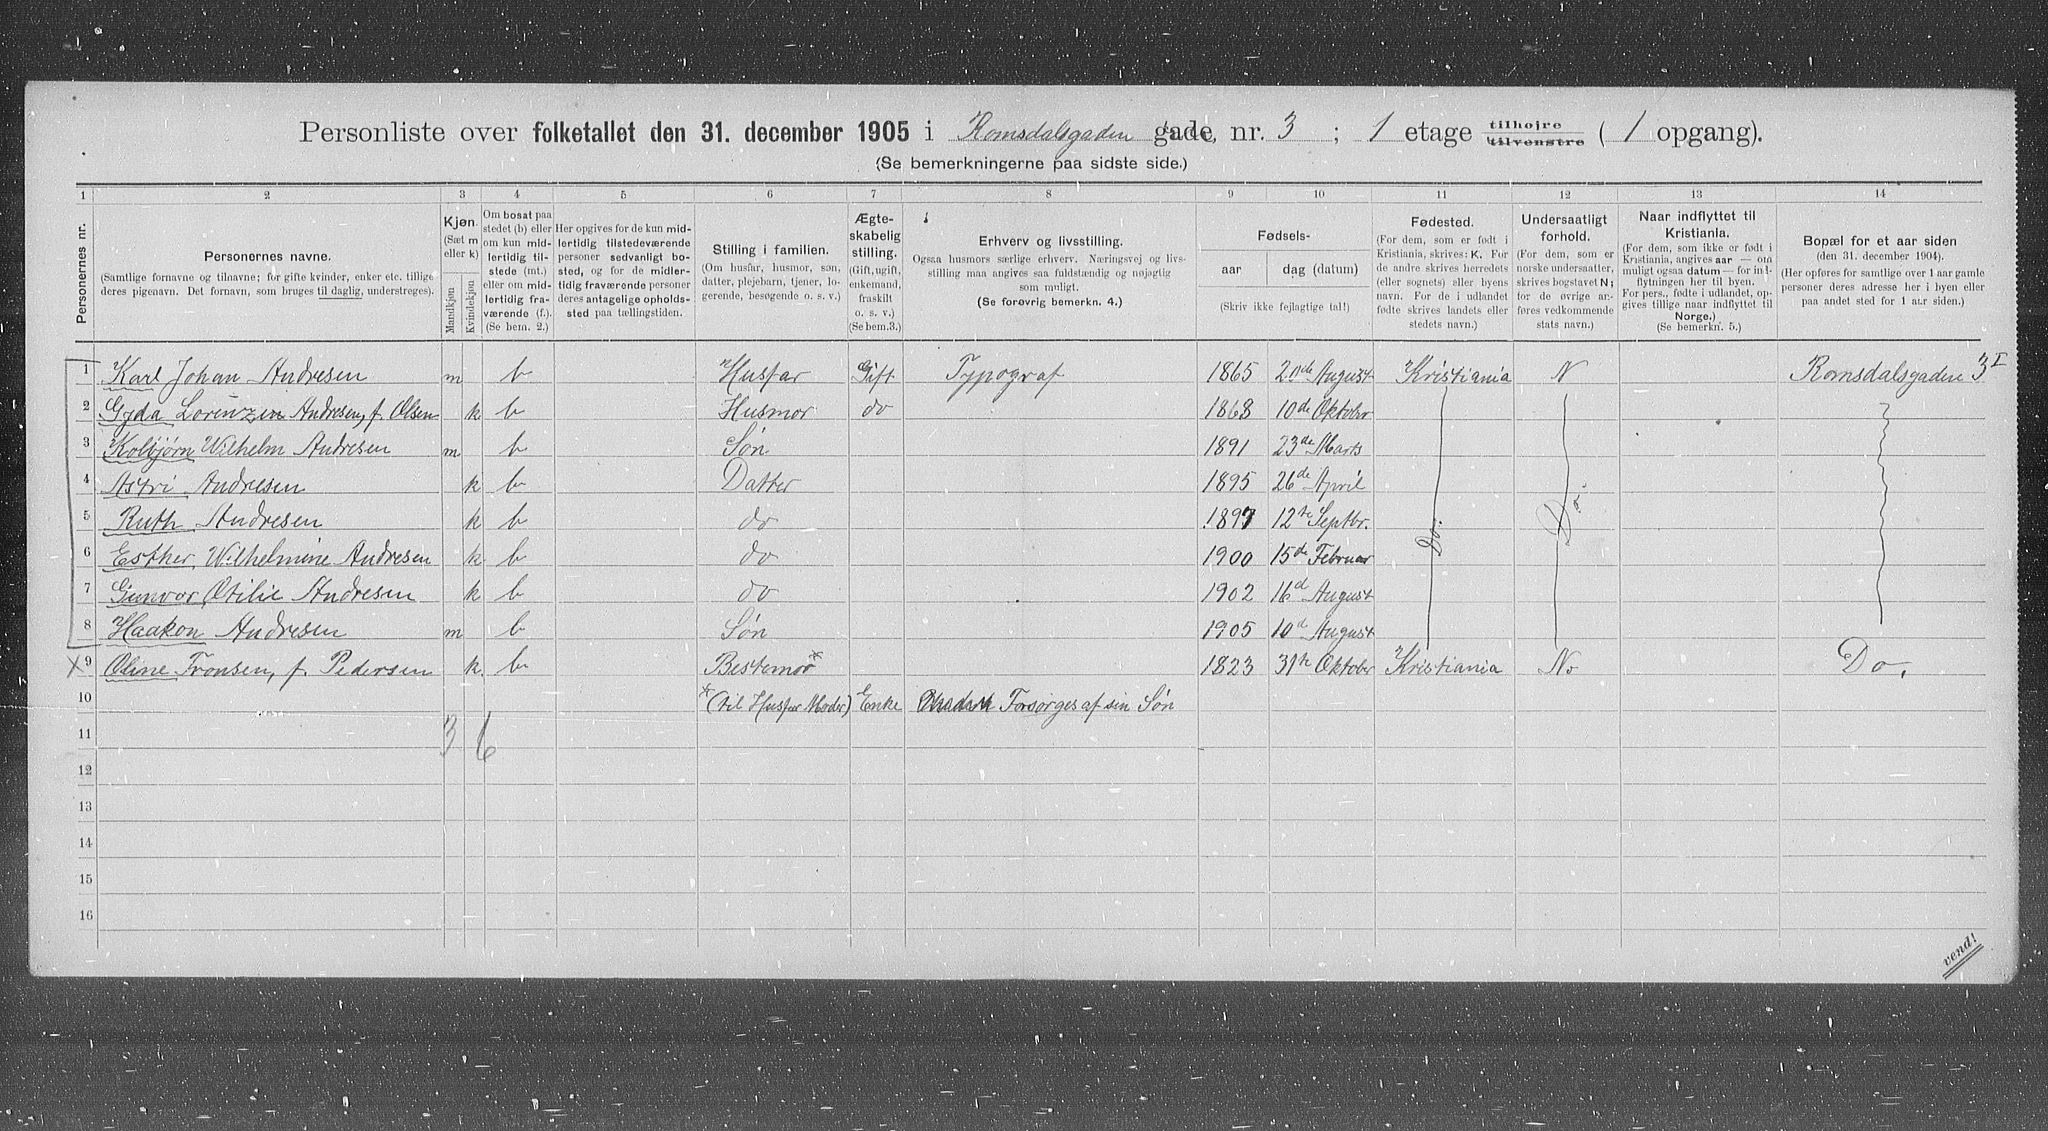 Personliste over folketallet den 31. december 1905 i Romsdalsgaden gade, nr. 3 ; 1 etage tilhøjre tilvenstre ( 1 opgang).
(Se bemerkningerne paa sidste side.)
1 2 3 4 5 6 7 8 9 10 11 12 13 14
Personernes nr.
Personernes navne.
(Samtlige fornavne og tilnavne; for gifte kvinder, enker etc. tillige
deres pigenavn. Det fornavn, som bruges til daglig, understreges).
Kjøn.
(Sæt m
eller k)
Mandkjøn
Kvindekjøn
Om bosat paa
stedet (b) eller
om kun mid-
lertidig tilste-
stede (mt.)
eller om mid-
lertidig fra-
værende (f.).
(Se bem. 2.)
Her opgives for de kun mid-
lertidig tilstedeværende
personer sedvanligt bo-
sted, og for de midler-
tidig fraværende personer
deres antagelige opholds-
sted paa tællingstiden.
Stilling i familien.
(Om husfar, husmor, søn,
datter, plejebarn, tjener, lo-
gerende, besøgende o. s. v.)
Ægte-
skabelig
stilling.
(Gift, ugift,
enkemand,
fraskilt
o. s. v.)
(Se bem.3.)
Erhverv og livsstilling.
Ogsaa husmors særlige erhverv. Næringsvej og livs-
stilling maa angives saa fuldstændig og nøjagtig
som muligt.
(Se forøvrig bemerkn. 4.)
Fødsels-
aar
dag (datum)
(Skriv ikke fejlagtige tal!)
Fødested.
(For dem, som er født i
Kristiania, skrives: K. For
de andre skrives herredets
(eller sognets) eller byens
navn. For de i udlandet
fødte skrives landets eller
stedets navn.)
Undersaatligt
forhold.
(For dem, som er
norske undersaatter,
skrives bogstavet N;
for de øvrige an-
føres vedkommende
stats navn.)
Naar indflyttet til
Kristiania.
(For dem, som ikke er født i
Kristiania, angives aar — om
muligt ogsaa datum — for ind-
flytningen her til byen.
For pers., fødte i udlandet, op-
gives tillige naar indflyttet til
Norge.)
(Se bemerkn. 5.)
Bopæl for et aar siden
(den 31. december 1904).
(Her opføres for samtlige over 1 aar gamle
personer deres adresse her i byen eller
paa andet sted for 1 aar siden.)
1 Karl Johan Andresen m b Husfar Gift Typograf 1865 2nde August Kristiania N Romsdalsgaden 3 I
2 Gyda Lorenzen Andresen, f. Olsen k b Husmor do 1868 10de Oktober
3 Kolbjørn Wilhelm Andresen m b Søn 1891 23de Marts
4 Astri Andresen k b Datter 1895 26de April
5 Ruth Andresen k b do 1897 12te Septbr. Do. Do.
6 Esther Wilhelmine Andresen k b do 1900 15de Februar
7 Gunvor Otilie Andresen k b do 1902 16d August
8 Haakon Andresen m b Søn 1905 10d August
X 9 Oline Fronsen, f. Pedersen k. b Bestemor* 1823 31te Oktobr Kristiania No Do.
10 * (til Husfar Moder) Enke Forsørges af sin Søn
11 3 6
12
13
14
15
16
vend!